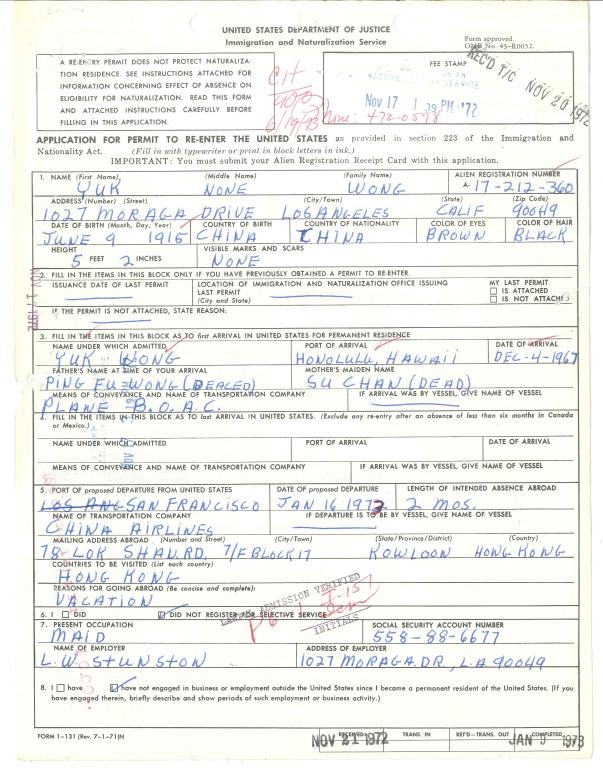 UNITED STATES DEPARTMENT OF JUSTICE
Immigration and Naturalization Service
Form approved.
OMB No. 43-R0052.
A RE-ENTRY PERMIT DOES NOT PROTECT NATURALIZA-
TION RESIDENCE. SEE INSTRUCTIONS ATTACHED FOR
INFORMATION CONCERNING EFFECT OF ABSENCE ON
ELIGIBILITY FOR NATURALIZATION. READ THIS FORM
AND ATTACHED INSTRUCTIONS CAREFULLY BEFORE
FILLING IN THIS APPLICATION.
FEE STAMP
REC'D T/C NOV 20 1972
NOV 17 1 39 PM '72
Phone: 472-0598
APPLICATION FOR PERMIT TO RE-ENTER THE UNITED STATES as provided in section 223 of the Immigration and
Nationality Act. (Fill in with typewriter or print in block letters in ink.)
IMPORTANT: You must submit your Alien Registration Receipt Card with this application.
1. NAME (First Name) (Middle Name) (Family Name) ALIEN REGISTRATION NUMBER
YUK NONE WONG A- 17-212-360
ADDRESS (Number) (Street) (City/Town) (State) (Zip Code)
1027 MORAGA DRIVE LOS ANGELES CALIF 90049
DATE OF BIRTH (Month, Day, Year) COUNTRY OF BIRTH COUNTRY OF NATIONALITY COLOR OF EYES COLOR OF HAIR
JUNE 9 1915 CHINA CHINA BROWN BLACK
HEIGHT VISIBLE MARKS AND SCARS
5 FEET 2 INCHES NONE
2. FILL IN THE ITEMS IN THIS BLOCK ONLY IF YOU HAVE PREVIOUSLY OBTAINED A PERMIT TO RE-ENTER.
ISSUANCE DATE OF LAST PERMIT LOCATION OF IMMIGRATION AND NATURALIZATION OFFICE ISSUING MY LAST PERMIT
LAST PERMIT IS ATTACHED
(City and State) IS NOT ATTACHED
IF THE PERMIT IS NOT ATTACHED, STATE REASON:
3. FILL IN THE ITEMS IN THIS BLOCK AS TO first ARRIVAL IN UNITED STATES FOR PERMANENT RESIDENCE
NAME UNDER WHICH ADMITTED PORT OF ARRIVAL DATE OF ARRIVAL
YUK WONG HONOLULU, HAWAII DEC-4-1967
FATHER'S NAME AT TIME OF YOUR ARRIVAL MOTHER'S MAIDEN NAME
PING FU WONG (DEACED) SU CHAN (DEAD)
MEANS OF CONVEYANCE AND NAME OF TRANSPORTATION COMPANY IF ARRIVAL WAS BY VESSEL, GIVE NAME OF VESSEL
PLANE B.O.A.C.
4. FILL IN THE ITEMS IN THIS BLOCK AS TO last ARRIVAL IN UNITED STATES. (Exclude any re-entry after an absence of less than six months in Canada
or Mexico.)
NAME UNDER WHICH ADMITTED PORT OF ARRIVAL DATE OF ARRIVAL
MEANS OF CONVEYANCE AND NAME OF TRANSPORTATION COMPANY IF ARRIVAL WAS BY VESSEL, GIVE NAME OF VESSEL
5. PORT OF proposed DEPARTURE FROM UNITED STATES DATE OF proposed DEPARTURE LENGTH OF INTENDED ABSENCE ABROAD
LOS ANG SAN FRANCISCO JAN 16 1973 2 MOS.
NAME OF TRANSPORTATION COMPANY IF DEPARTURE IS TO BE BY VESSEL, GIVE NAME OF VESSEL
CHINA AIRLINES
MAILING ADDRESS ABROAD (Number and Street) (City/Town) (State/Province/District) (Country)
78 LOK SHAU.RD. 7/F BLOCK 17 KOWLOON HONG KONG
COUNTRIES TO BE VISITED (List each country)
HONG KONG
REASONS FOR GOING ABROAD (Be concise and complete):
VACATION
ADMISSION VERIFIED
INITIALS
6. I DID DID NOT REGISTER FOR SELECTIVE SERVICE
7. PRESENT OCCUPATION SOCIAL SECURITY ACCOUNT NUMBER
MAID 558-88-6677
NAME OF EMPLOYER ADDRESS OF EMPLOYER
L.W. STUNSTON 1027 MORAGA.DR, L.A 90049
8. I have have not engaged in business or employment outside the United States since I became a permanent resident of the United States. (If you
have engaged therein, briefly describe and show periods of such employment or business activity.)
FORM I-131 (Rev. 7-1-71)N RECEIVED TRANS. IN RET'D-TRANS. OUT COMPLETED
NOV 21 1972 JAN 3 1973